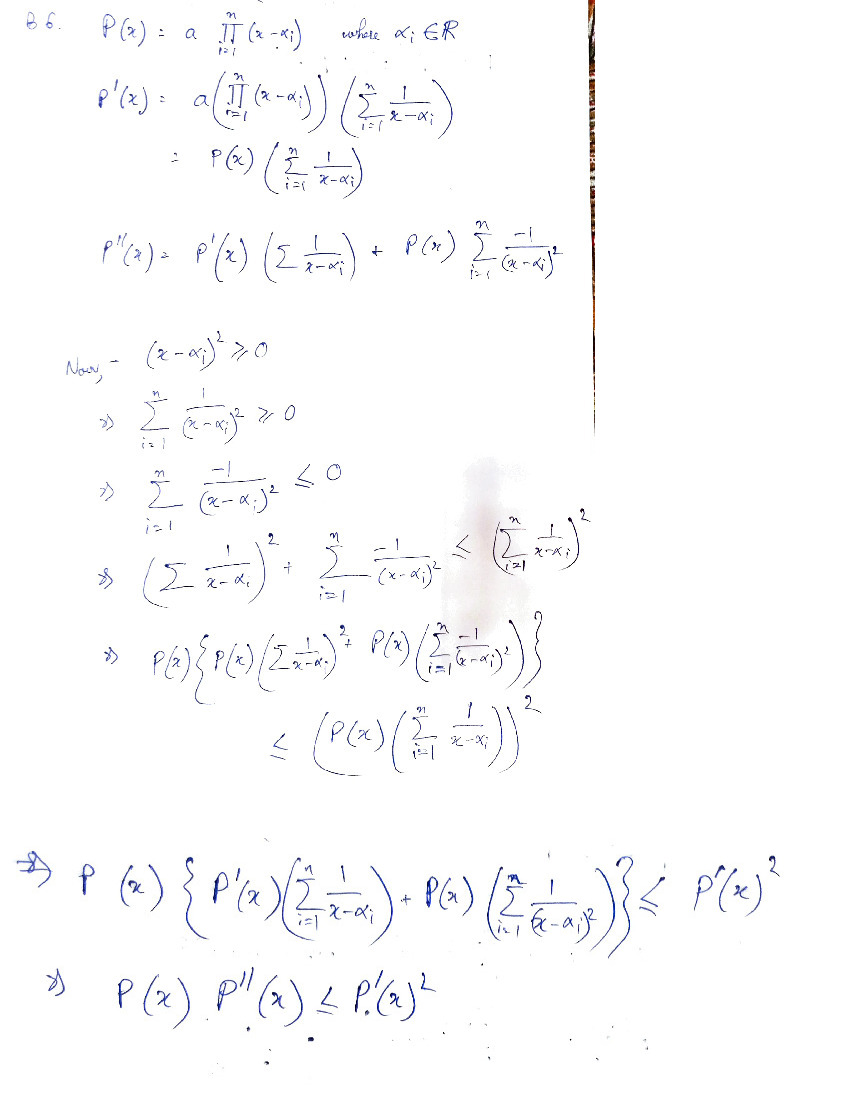 B 6. P(x) = a ∏_{i=1}^{n} (x-α_i) where α_i ∈ R
P'(x) = a(∏_{i=1}^{n} (x-α_i)) (∑_{i=1}^{n} 1/(x-α_i))
= P(x) (∑_{i=1}^{n} 1/(x-α_i))
P''(x) = P'(x) (∑ 1/(x-α_i)) + P(x) ∑_{i=1}^{n} -1/(x-α_i)^2
Now, - (x-α_i)^2 ⩾ 0
⇒ ∑_{i=1}^{n} 1/(x-α_i)^2 ⩾ 0
⇒ ∑_{i=1}^{n} -1/(x-α_i)^2 ≤ 0
⇒ (∑ 1/(x-α_i))^2 + ∑_{i=1}^{n} -1/(x-α_i)^2 ≤ (∑_{i=1}^{n} 1/(x-α_i))^2
⇒ P(x){P(x)(∑ 1/(x-α_i))^2 + P(x)(∑_{i=1}^{n} -1/(x-α_i)^2)}
≤ (P(x)(∑_{i=1}^{n} 1/(x-α_i)))^2
⇒ P(x) {P'(x)(∑_{i=1}^{n} 1/(x-α_i)) + P(x)(∑_{i=1}^{n} 1/(x-α_i)^2)} ≤ P'(x)^2
⇒ P(x) P''(x) ≤ P'(x)^2